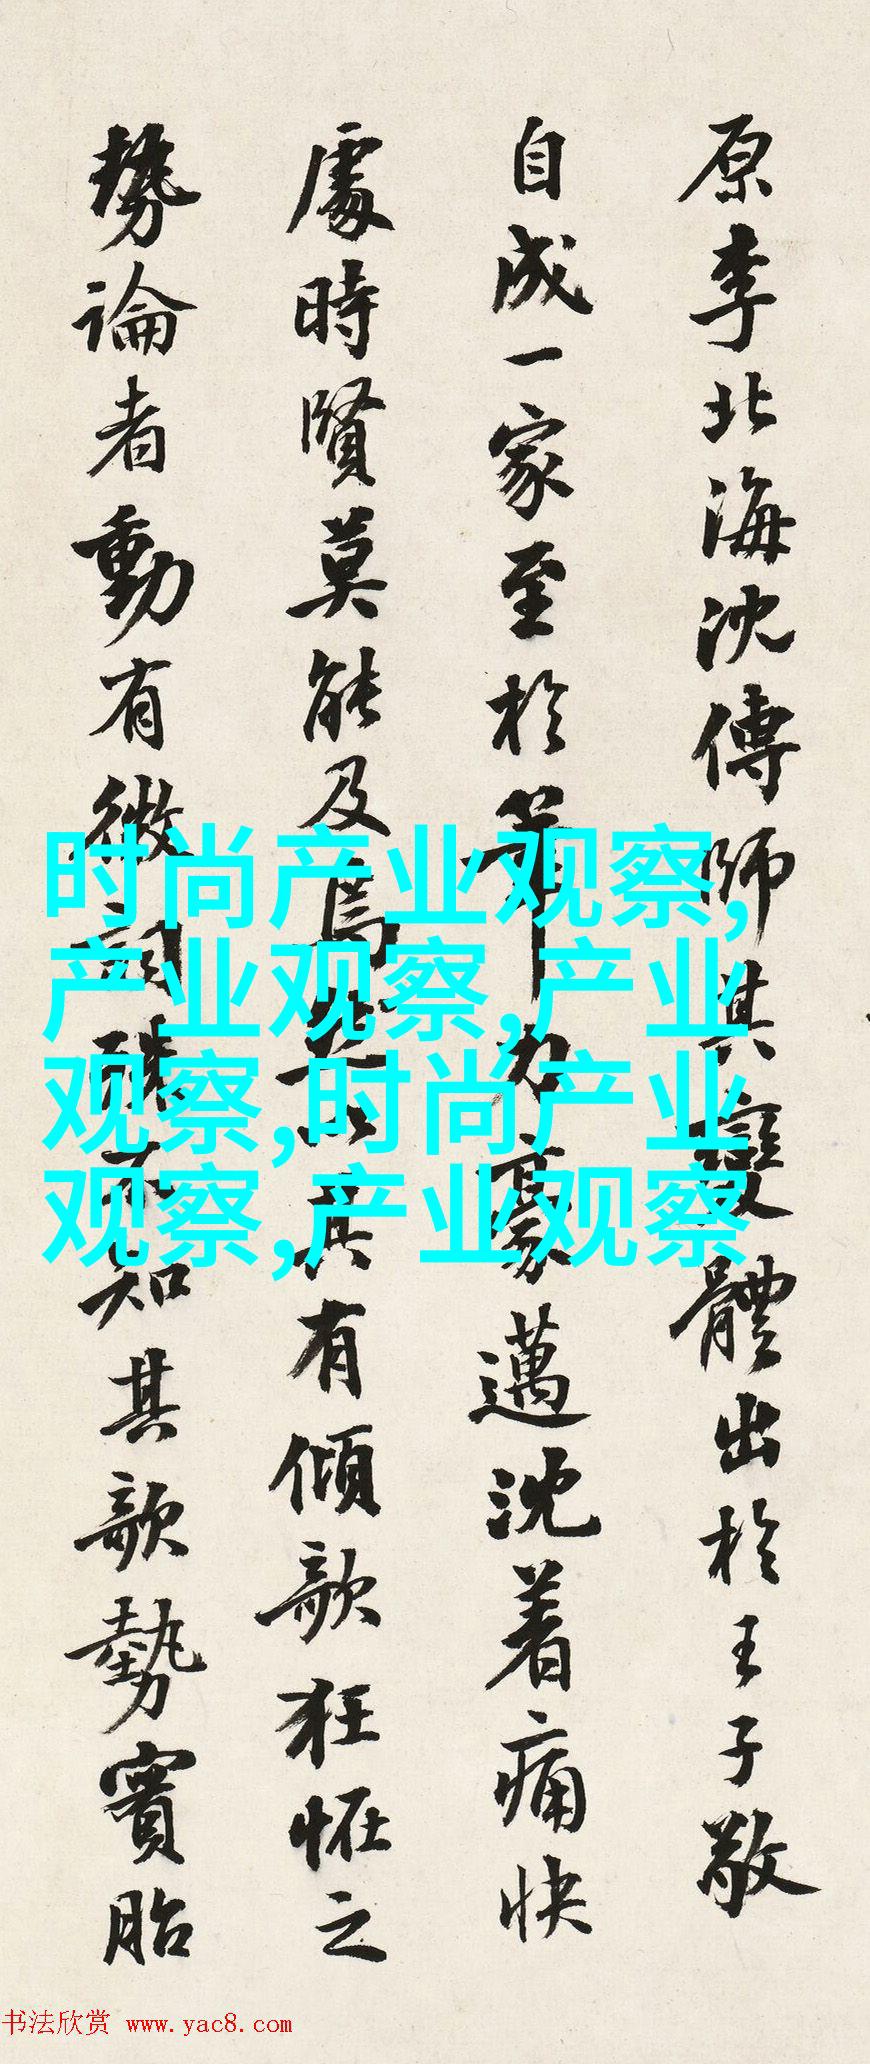 原李北海沈傳師其變體出於王子敬
自成一家至於筆力豪邁沈着痛快
處時賢莫能及焉然以其有傾欹狂怪之
勢論者動有微詞殊不知其欹勢實胎
时尚产业观察,
产业观察,产业
观察,时尚产业
观察,产业观察
书法欣赏 www.yac8.com